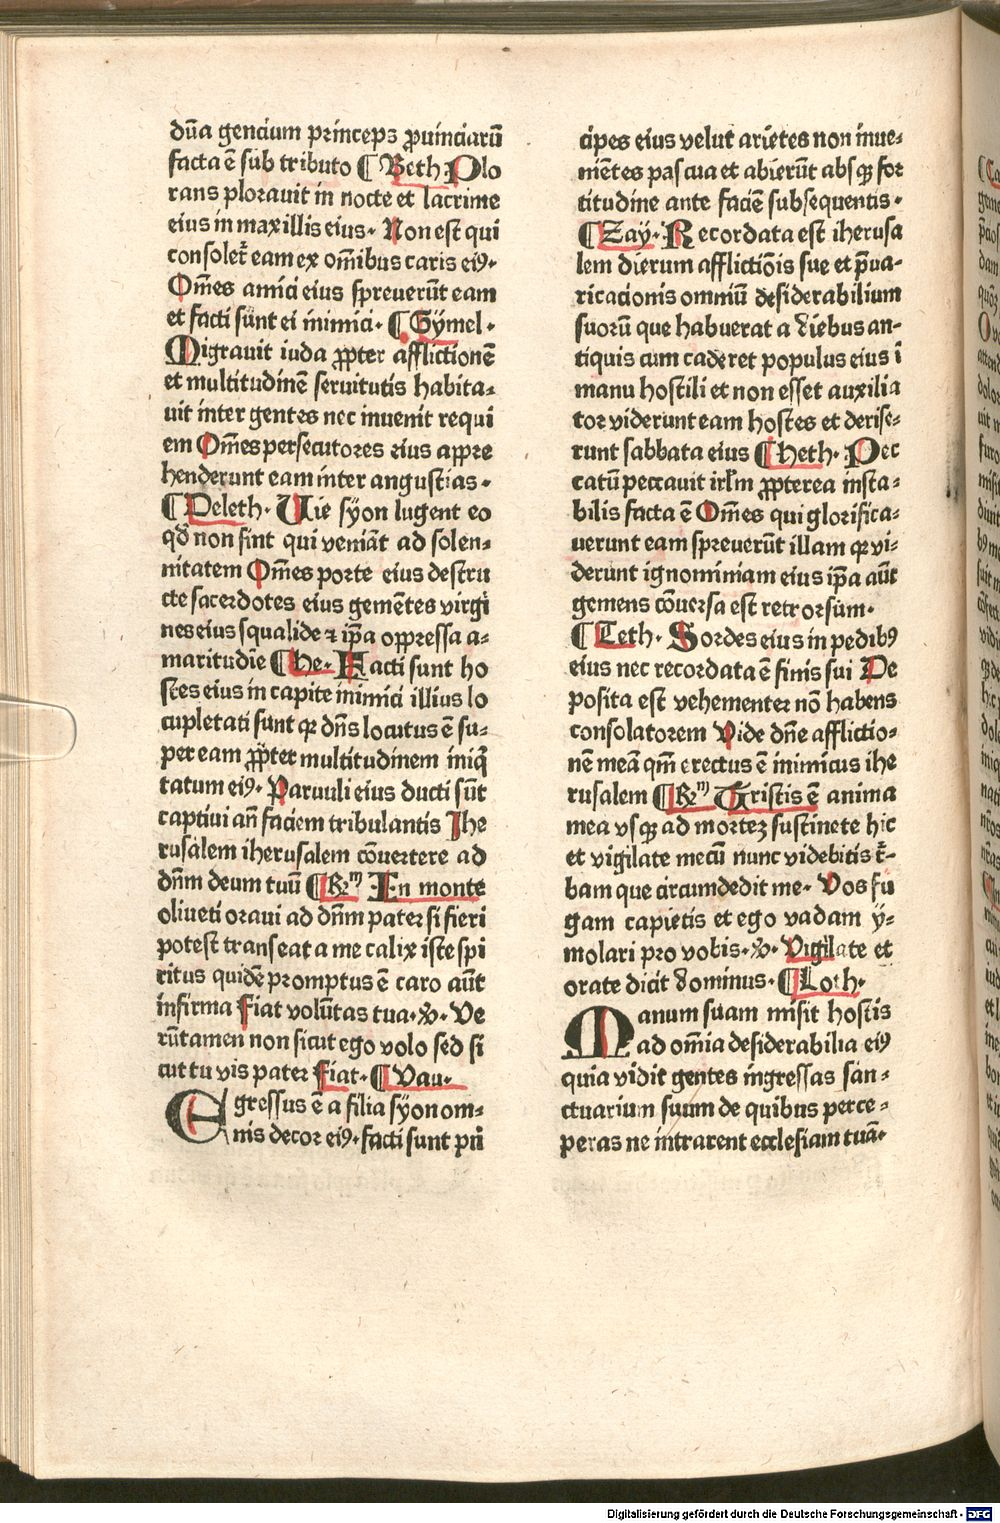 dūa gencium princeps ꝓuinciarū
facta ē sub tributo ¶ Beth Plo
rans plorauit in nocte et lacrime
eius in maxillis eius. Non est qui
consolet̄ eam ex om̄ibus caris eiꝰ.
Om̄es amici eius spreuerūt eam
et facti sūnt ei inimici. ¶ Gymel.
Migrauit iuda ꝓpter afflictionē
et multitudinē seruitutis habita-
uit inter gentes nec inuenit requi
em Om̄es persecutores eius appre
henderunt eam inter angustias.
¶ Deleth. Uie syon lugent eo
qd̄ non sint qui veniāt ad solen-
nitatem Om̄es porte eius destru
cte sacerdotes eius gemētes virgi
nes eius squalide ⁊ ip̄a oppressa a-
maritudīe ¶ he. Facti sunt ho
stes eius in capite inimici illius lo
cupletati sunt qꝛ dn̄s locutus ē su-
per eam ꝓpter multitudinem iniq̄
tatum eiꝰ. Paruuli eius ducti sūt
captiui an̄ faciem tribulantis Ihe
rusalem iherusalem cōuertere ad
dn̄m deum tuū ¶ Rm̄ In monte
oliueti oraui ad dn̄m pater si fieri
potest transeat a me calix iste spi
ritus quidē promptus ē caro aūt
infirma Fiat volūtas tua. ꝟ. Ve
rūtamen non sicut ego volo sed si
cut tu vis pater Fiat. ¶ Vau.
Egressus ē a filia syon om-
nis decor eiꝰ. facti sunt pri
cipes eius velut arietes non inue-
niētes pascua et abierūt absqꝫ for
titudine ante faciē subsequentis.
¶ Zay. Recordata est iherusa
lem dierum afflictiōis sue et p̄ua-
ricacionis omniū desiderabilium
suorū que habuerat a diebus an-
tiquis cum caderet populus eius ī
manu hostili et non esset auxilia
tor viderunt eam hostes et derise-
runt sabbata eius ¶ heth. Pec
catū peccauit irl̄m ꝓpterea insta-
bilis facta ē Om̄es qui glorifica-
uerunt eam spreuerūt illam qꝛ vi-
derunt ignominiam eius ip̄a aūt
gemens cōuersa est retrorsum.
¶ Teth. Sordes eius in pedibꝰ
eius nec recordata ē finis sui De
posita est vehementer nō habens
consolatorem Vide dn̄e afflictio-
nē meā qm̄ erectus ē inimicus ihe
rusalem ¶ Rm̄ Tristis ē anima
mea vsqꝫ ad mortez sustinete hic
et vigilate mecū nunc videbitis t̄-
bam que circumdedit me. Vos fu
gam capietis et ego vadam y-
molari pro vobis. ꝟ. Vigilate et
orate dicit dominus. ¶ Loth.
Manum suam misit hostis
ad om̄ia desiderabilia eiꝰ
quia vidit gentes ingressas san-
ctuarium suum de quibus perce-
peras ne intrarent ecclesiam tuā.
Digitalisierung gefördert durch die Deutsche Forschungsgemeinschaft - DFG